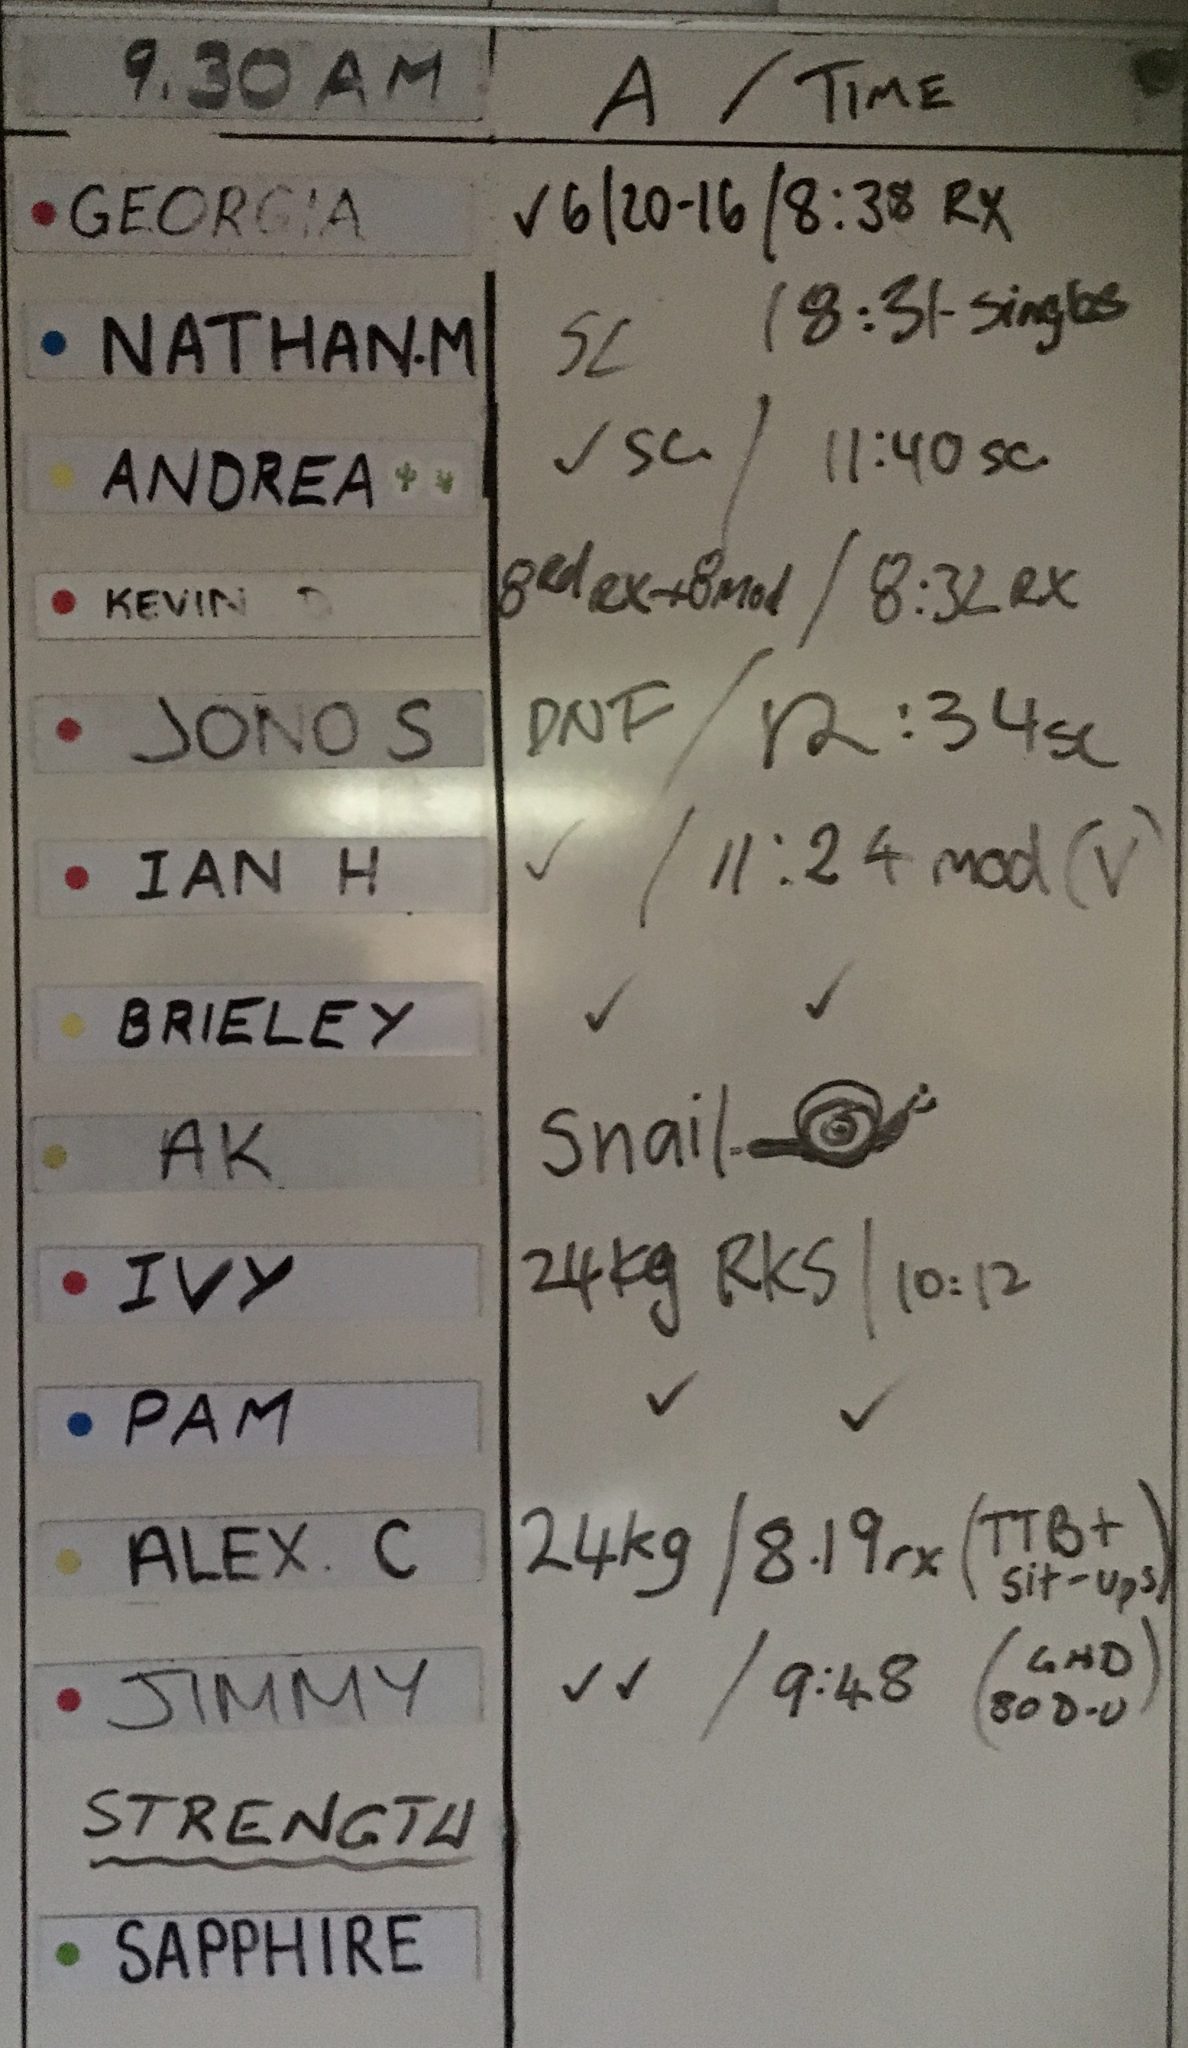 9.30 AM A / TIME
GEORGIA ✓6/20-16/8:38 RX
NATHAN.M SC /8:31-singles
ANDREA ✓ SC / 11:40 SC
KEVIN D 8rd RX+8mod / 8:32 RX
JONO S DNF / 12:34 SC
IAN H ✓ / 11:24 mod (V)
BRIELEY ✓ ✓
AK Snail
IVY 24kg RKS / 10:12
PAM ✓ ✓
ALEX. C 24kg /8.19 rx (TTB+
sit-ups)
JIMMY ✓✓ / 9:48 (GHD
80 D-U)
STRENGTH
SAPPHIRE